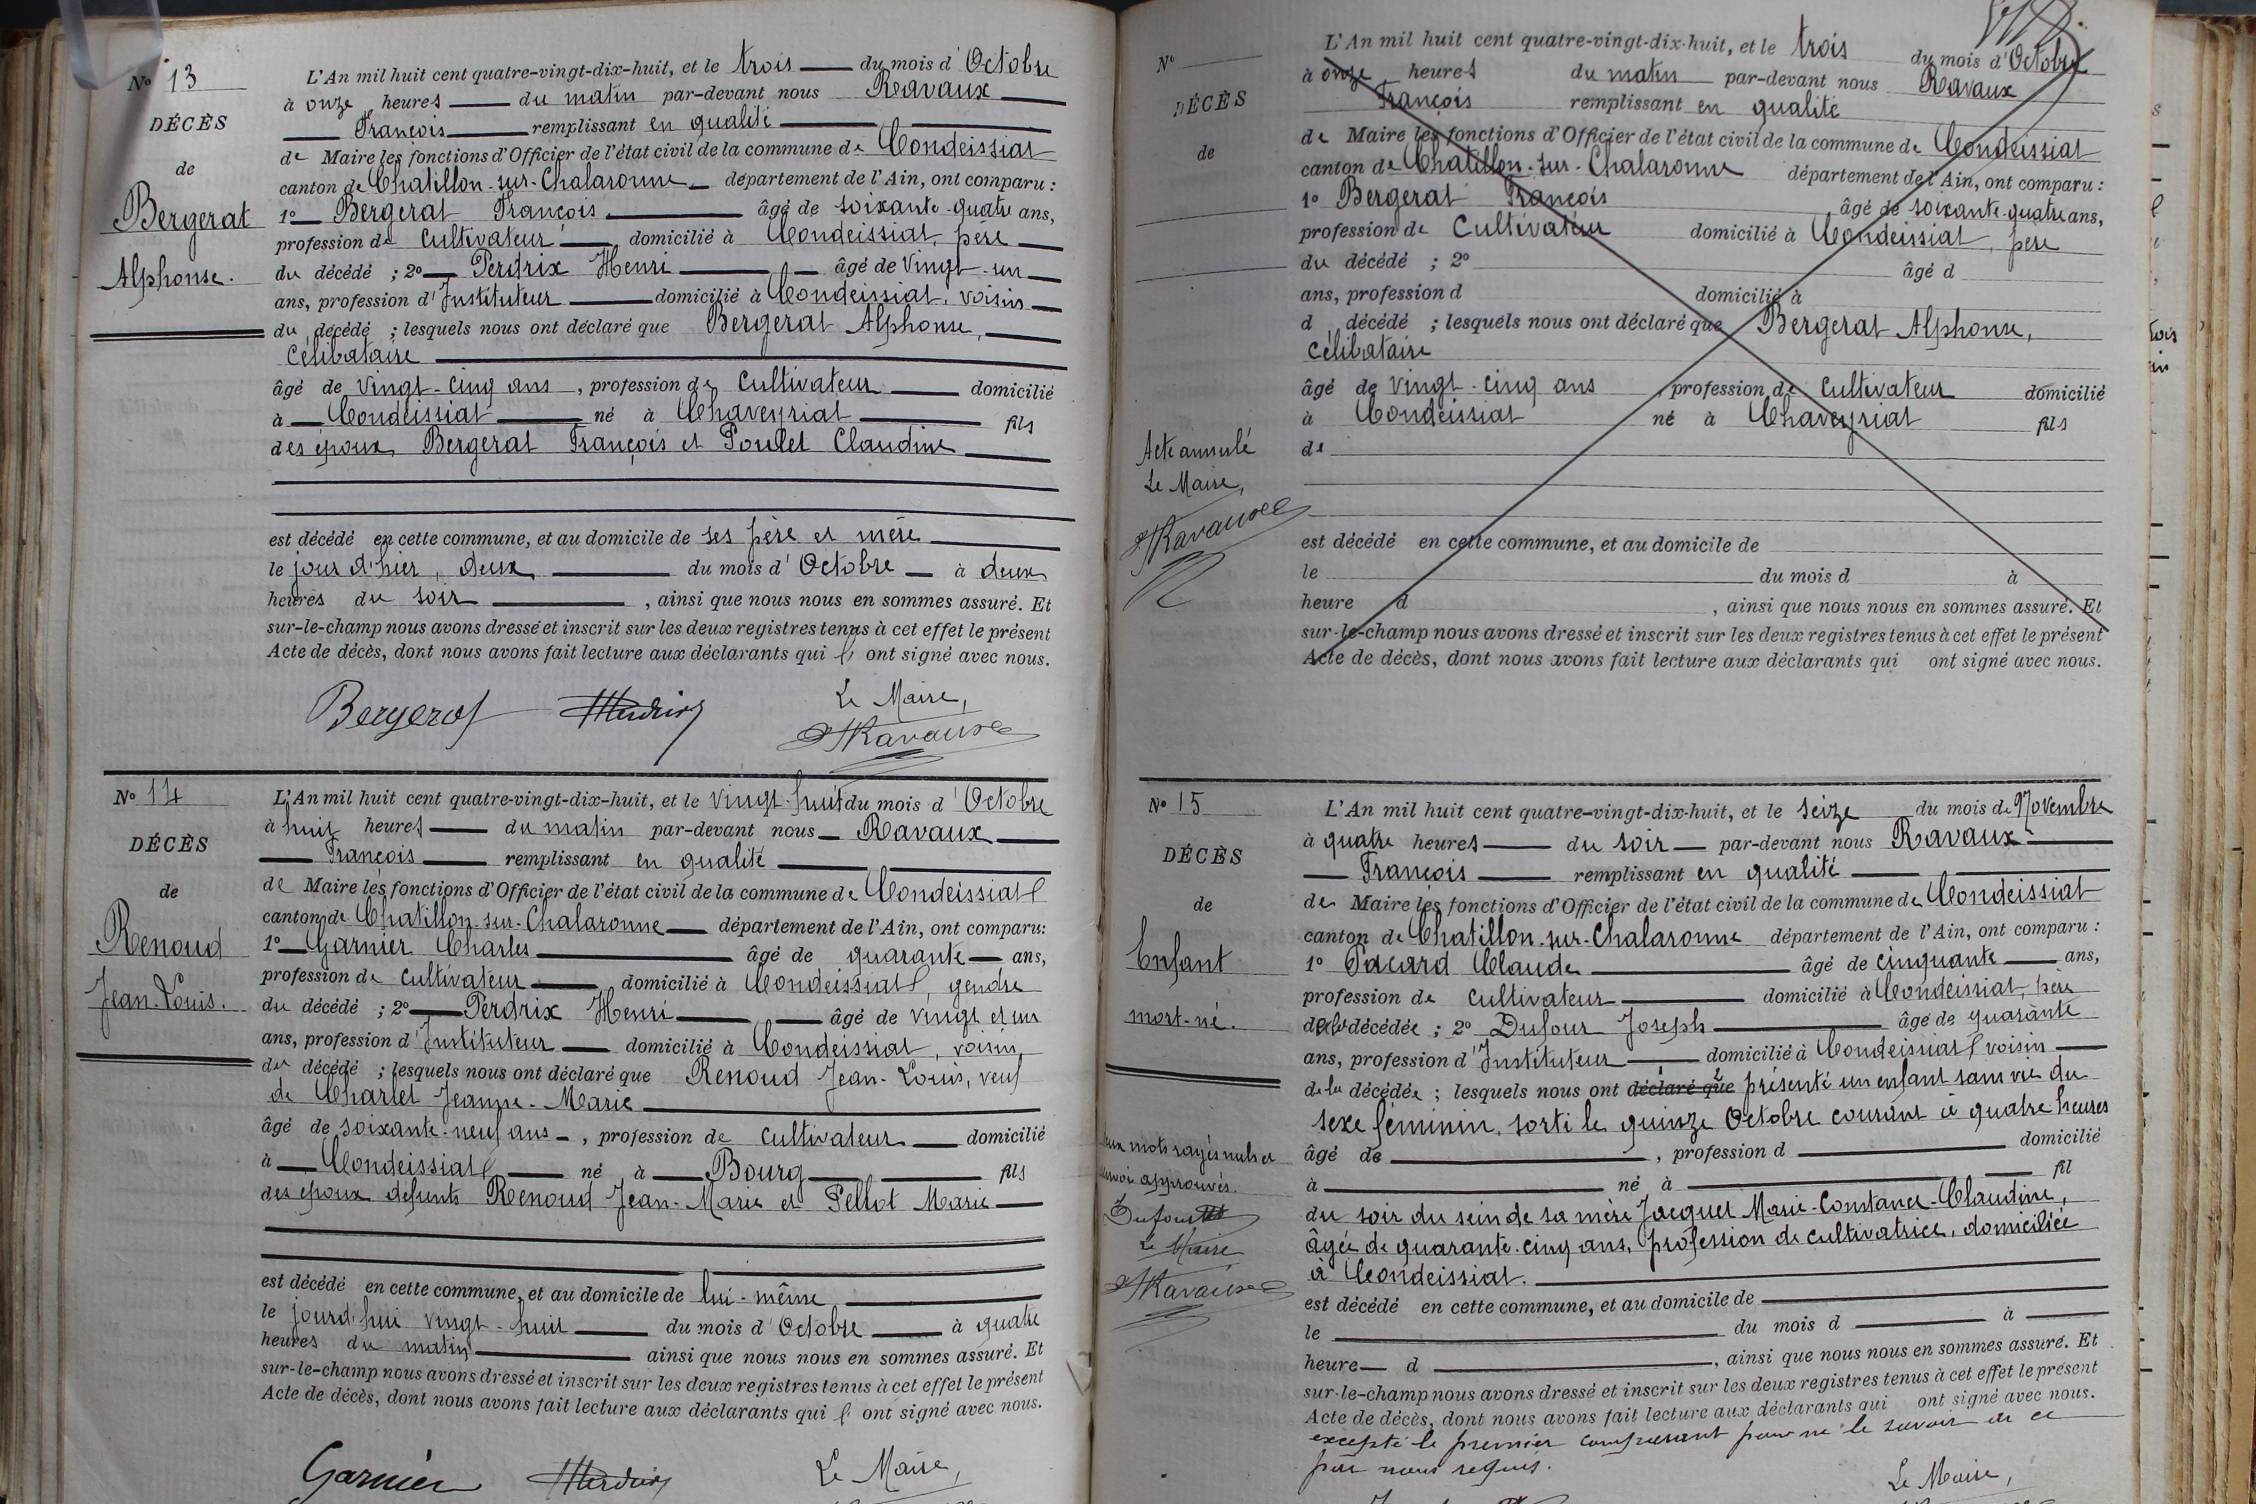 N° 13
DÉCÈS
de
Bergerat
Alphonse.
L'An mil huit cent quatre-vingt-dix-huit, et le trois du mois d'Octobre
à onze heures du matin par-devant nous Ravaux
François remplissant en qualité
de Maire les fonctions d'Officier de l'état civil de la commune de Condeissiat
canton de Chatillon-sur-Chalaronne département de l'Ain, ont comparu :
1° Bergerat François âgé de soixante-quatre ans,
profession de cultivateur domicilié à Condeissiat, père
du décédé ; 2° Perdrix Henri âgé de vingt-un
ans, profession d'Instituteur domicilié à Condeissiat, voisin
du décédé ; lesquels nous ont déclaré que Bergerat Alphonse,
célibataire
âgé de vingt-cinq ans, profession de cultivateur domicilié
à Condeissiat né à Chaveyriat fils
des époux Bergerat François et Poulet Claudine
est décédé en cette commune, et au domicile de ses père et mère
le jour d'hier, deux du mois d'Octobre à deux
heures du soir, ainsi que nous nous en sommes assuré. Et
sur-le-champ nous avons dressé et inscrit sur les deux registres tenus à cet effet le présent
Acte de décès, dont nous avons fait lecture aux déclarants qui l' ont signé avec nous.
Bergerat HPerdrix Le Maire,
FRavaux
N° 14
DÉCÈS
de
Renoud
Jean-Louis.
L'An mil huit cent quatre-vingt-dix-huit, et le vingt-huit du mois d'Octobre
à huit heures du matin par-devant nous Ravaux
François remplissant en qualité
de Maire les fonctions d'Officier de l'état civil de la commune de Condeissiat
canton de Chatillon-sur-Chalaronne département de l'Ain, ont comparu :
1° Garnier Charles âgé de quarante ans,
profession de cultivateur domicilié à Condeissiat, gendre
du décédé ; 2° Perdrix Henri âgé de vingt et un
ans, profession d'Instituteur domicilié à Condeissiat, voisin
du décédé ; lesquels nous ont déclaré que Renoud Jean-Louis, veuf
de Charlet Jeanne-Marie
âgé de soixante-neuf ans, profession de cultivateur domicilié
à Condeissiat né à Bourg fils
des époux défunts Renoud Jean-Marie et Pellot Marie
est décédé en cette commune, et au domicile de lui-même
le jourd'hui vingt-huit du mois d'Octobre à quatre
heures du matin ainsi que nous nous en sommes assuré. Et
sur-le-champ nous avons dressé et inscrit sur les deux registres tenus à cet effet le présent
Acte de décès, dont nous avons fait lecture aux déclarants qui l' ont signé avec nous.
Garnier HPerdrix Le Maire,
N°
DÉCÈS
de
Acte annulé
Le Maire,
FRavaux
L'An mil huit cent quatre-vingt-dix-huit, et le trois du mois d'Octobre
à onze heures du matin par-devant nous Ravaux
François remplissant en qualité
de Maire les fonctions d'Officier de l'état civil de la commune de Condeissiat
canton de Chatillon-sur-Chalaronne département de l'Ain, ont comparu :
1° Bergerat François âgé de soixante-quatre ans,
profession de Cultivateur domicilié à Condeissiat, père
du décédé ; 2° âgé d
ans, profession d domicilié à
d décédé ; lesquels nous ont déclaré que Bergerat Alphonse,
célibataire
âgé de vingt-cinq ans, profession de cultivateur domicilié
à Condeissiat né à Chaveyriat fils
de
est décédé en cette commune, et au domicile de
le du mois d à
heure d , ainsi que nous nous en sommes assuré. Et
sur-le-champ nous avons dressé et inscrit sur les deux registres tenus à cet effet le présent
Acte de décès, dont nous avons fait lecture aux déclarants qui ont signé avec nous.
N° 15
DÉCÈS
de
Enfant
mort-né.
mots rayés nuls et
approuvés.
Dufour
Le Maire
FRavaux
L'An mil huit cent quatre-vingt-dix-huit, et le seize du mois de Novembre
à quatre heures du soir par-devant nous Ravaux
François remplissant en qualité
de Maire les fonctions d'Officier de l'état civil de la commune de Condeissiat
canton de Chatillon-sur-Chalaronne département de l'Ain, ont comparu :
1° Pacard Claude âgé de cinquante ans,
profession de cultivateur domicilié à Condeissiat, père
de la décédée ; 2° Dufour Joseph âgé de quarante
ans, profession d'Instituteur domicilié à Condeissiat voisin
de la décédée ; lesquels nous ont déclaré que présenté un enfant sans vie du
sexe féminin, sorti le quinze Octobre courant à quatre heures
âgé de , profession d domicilié
à né à fil
du soir du sein de sa mère Jacquet Marie-Constance-Claudine,
âgée de quarante-cinq ans, profession de cultivatrice, domiciliée
à Condeissiat.
est décédé en cette commune, et au domicile de
le du mois d à
heure d , ainsi que nous nous en sommes assuré. Et
sur-le-champ nous avons dressé et inscrit sur les deux registres tenus à cet effet le présent
Acte de décès, dont nous avons fait lecture aux déclarants qui ont signé avec nous.
excepté le premier comparant pour ne le savoir de ce
par nous requis.
Le Maire,